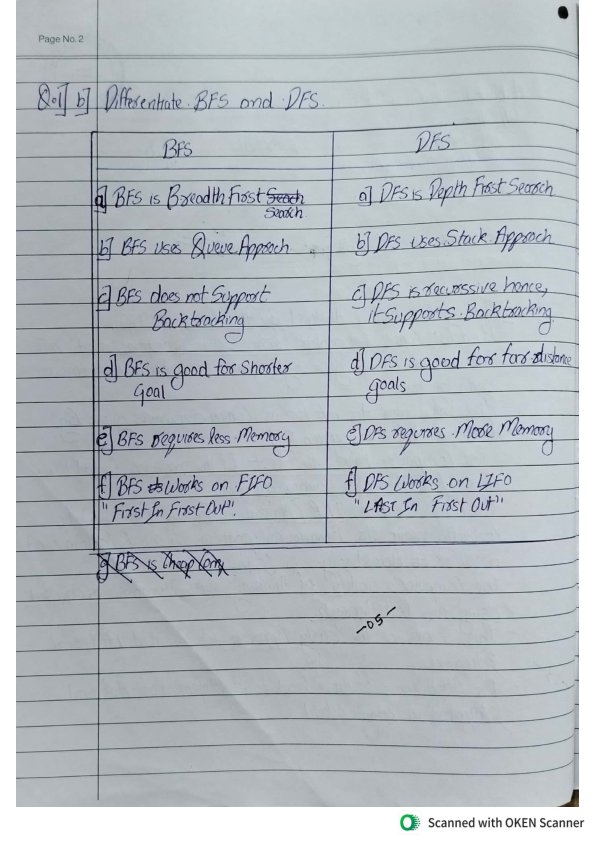 Page No. 2
Q.1] b] Differentiate BFS and DFS.
BFS
DFS
a] BFS is Breadth First Seach
Search
a] DFS is Depth First Search
b] BFS uses Queue Approch
b] DFS uses Stack Approch
c] BFS does not Support
Backtracking
c] DFS is recurssive hence,
it Supports Backtracking
d] BFS is good for Shorter
Goal
d] DFS is good for far distance
goals
e] BFS requires less Memory
e] DFS requires More Memory
f] BFS works on FIFO
"First In First Out".
f] DFS Works on LIFO
"LAST In First Out"
g] BFS is Cheap
-05-
Scanned with OKEN Scanner